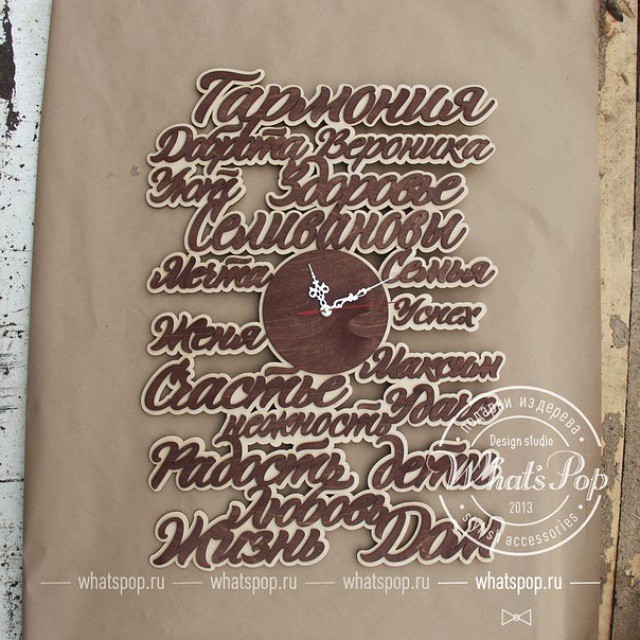 Гармония
Доброта Вероника
Уют Здоровье
Селивановы
Мечта Семья
Успех
Женя
Максим
Счастье Удача
нежность
Радость дети
Любовь
Жизнь Дом
подарки из дерева
Design studio
What's Pop
2013
stylish accessories
whatspop.ru whatspop.ru whatspop.ru whatspop.ru